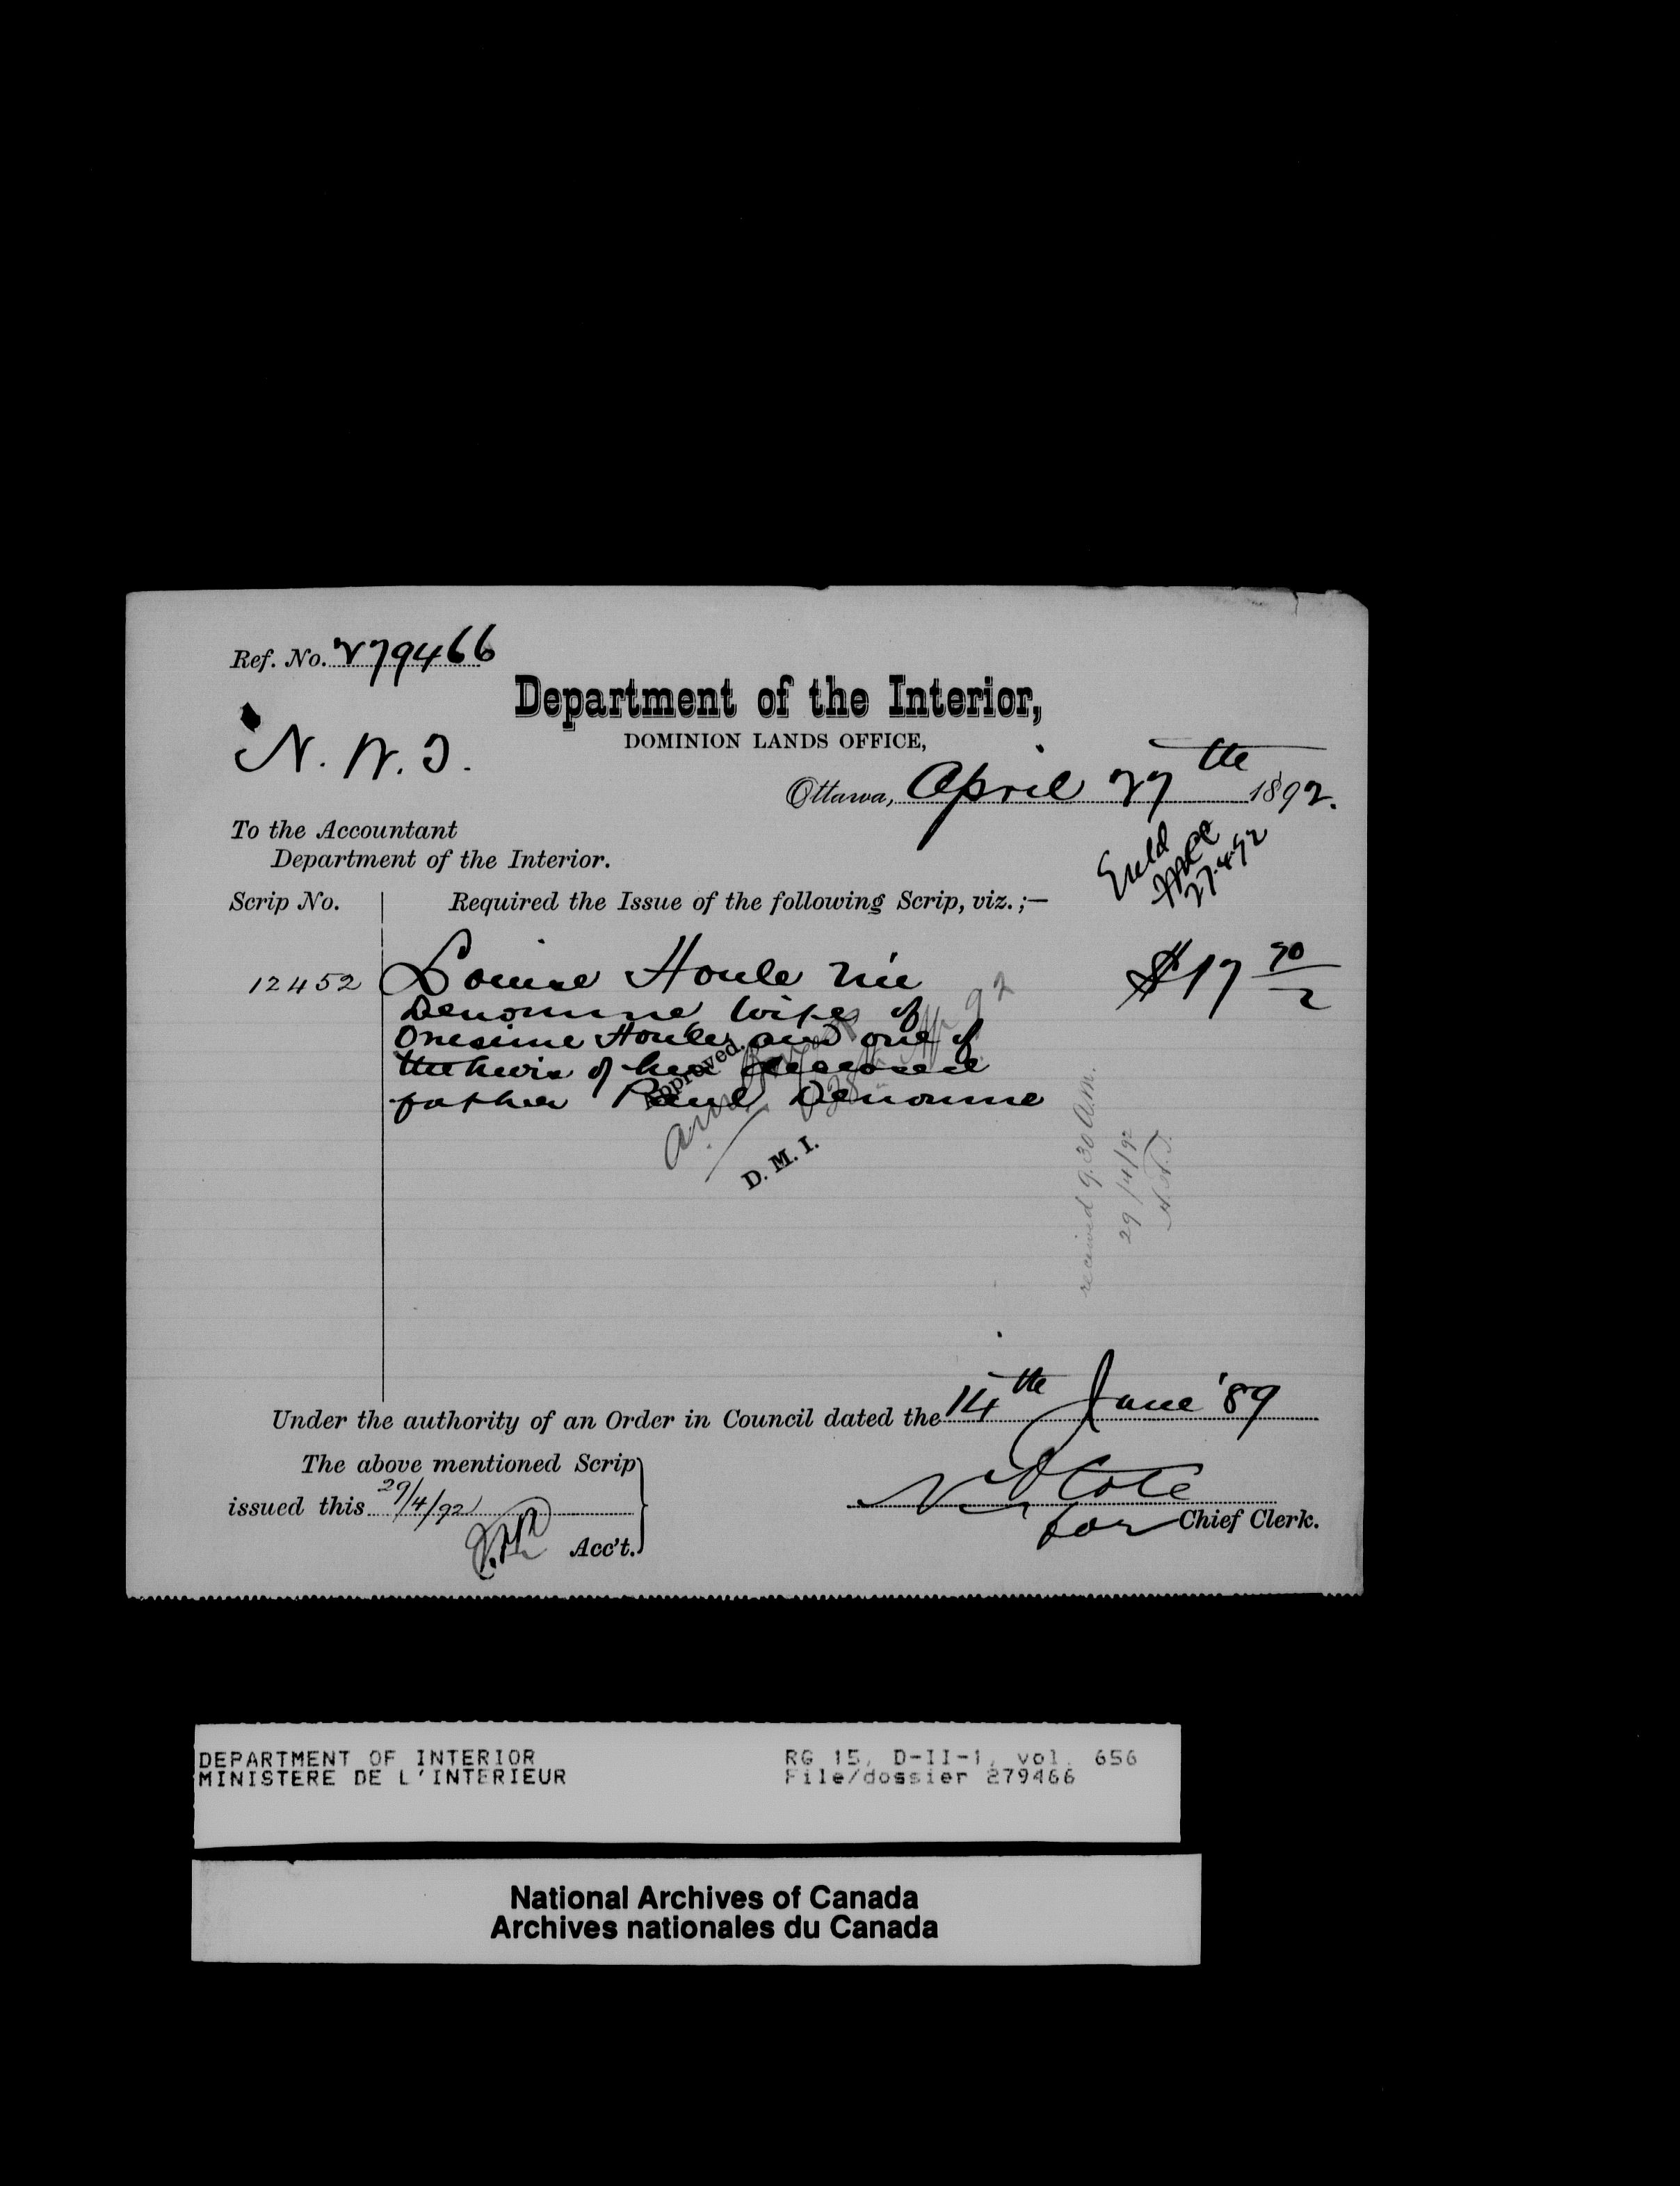 Ref. No. 279466
Department of the Interior,
DOMINION LANDS OFFICE,
N. W. T.
Ottawa, April 27th 1892.
To the Accountant
Department of the Interior.
27-4-92
Scrip No. Required the Issue of the following Scrip, viz. ;—
12452 Louise Houle née $17 90
Denomme wife of
Onesime Houle and one of
the heirs of her deceased
father Paul Denomme
Approved.
D. M. I.
received 9.30 a.m.
29/4/92
Under the authority of an Order in Council dated the 14th June '89
The above mentioned Scrip
issued this 29/4/92
N O Coté
for Chief Clerk.
Acc't.
DEPARTMENT OF INTERIOR RG 15, D-II-1, vol. 656
MINISTERE DE L'INTERIEUR File/dossier 279466
National Archives of Canada
Archives nationales du Canada